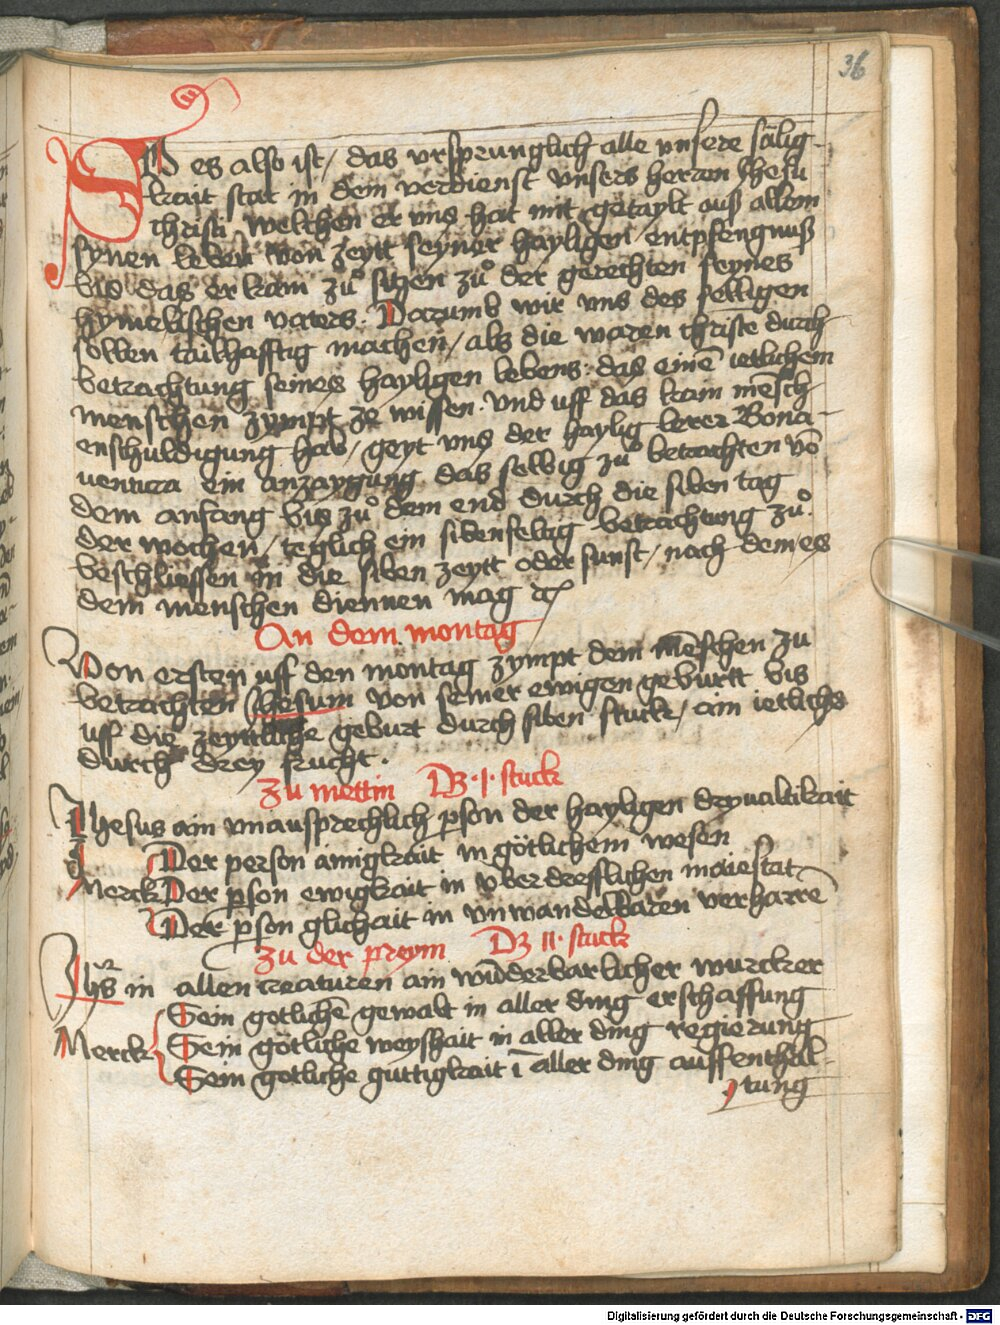 36
SO es also ist / das vrsprunglich alle vnsere sälig-
kait stat in dem verdienst vnsers herren Jhesu
christi welchen er vns hat mit getaylt auß allem
synen leben von zeytt seyner hayligen entpfengnuß
bis das er kam zů sitzen zů der gerechten seynes
hymelischen vaters. Darumb wir vns des selbigen
sollen tailhafftig machen / als die waren christe durch
betrachtung seines hayligen lebens: das eine͞ ietlichem
menschen zympt ze wissen. vnd uff das kain me͞sch
enschuldigung hab / geyt vns der haylig lerer Bona-
ventura ein anzaygung das selbig zů betrachten vo͞
dem anfang bis zů dem end durch die siben tag
der wochen / teglich ein sibenfeltig betrachtung zů
beschliessen in die siben zeytt oder sunst / nach dem es
dem menschen diennen mag ⁊c
An dem montag
Von ersten uff den montag zympt dem me͞schen zu
betrachten Jhesum von seiner ewigen geburtt bis
uff die zeyttliche geburt durch siben stuck / ain ietlichs
durch drey frucht.
Zu mettin Dz .I. stuck
Jhesus ain vnausprechlich ꝑson der hayligen dryualtikait
Der person ainigkait in götlichem wesen
Merck Der ꝑson ewigkait in vberdrefflichen maiestat
Der ꝑson glichait in vnwandelbaren verharre͞
Zu der preym Dz II stuck
Jhs in allen creaturen ain wu͞derbarlicher wurcker
Sein gotliche͞ gewalt in aller ding erschaffung
Merck Sein götliche weyshait in aller ding regierung
Sein gotliche guttigkait i͞ aller ding auffenthal-
tung
Digitalisierung gefördert durch die Deutsche Forschungsgemeinschaft - DFG